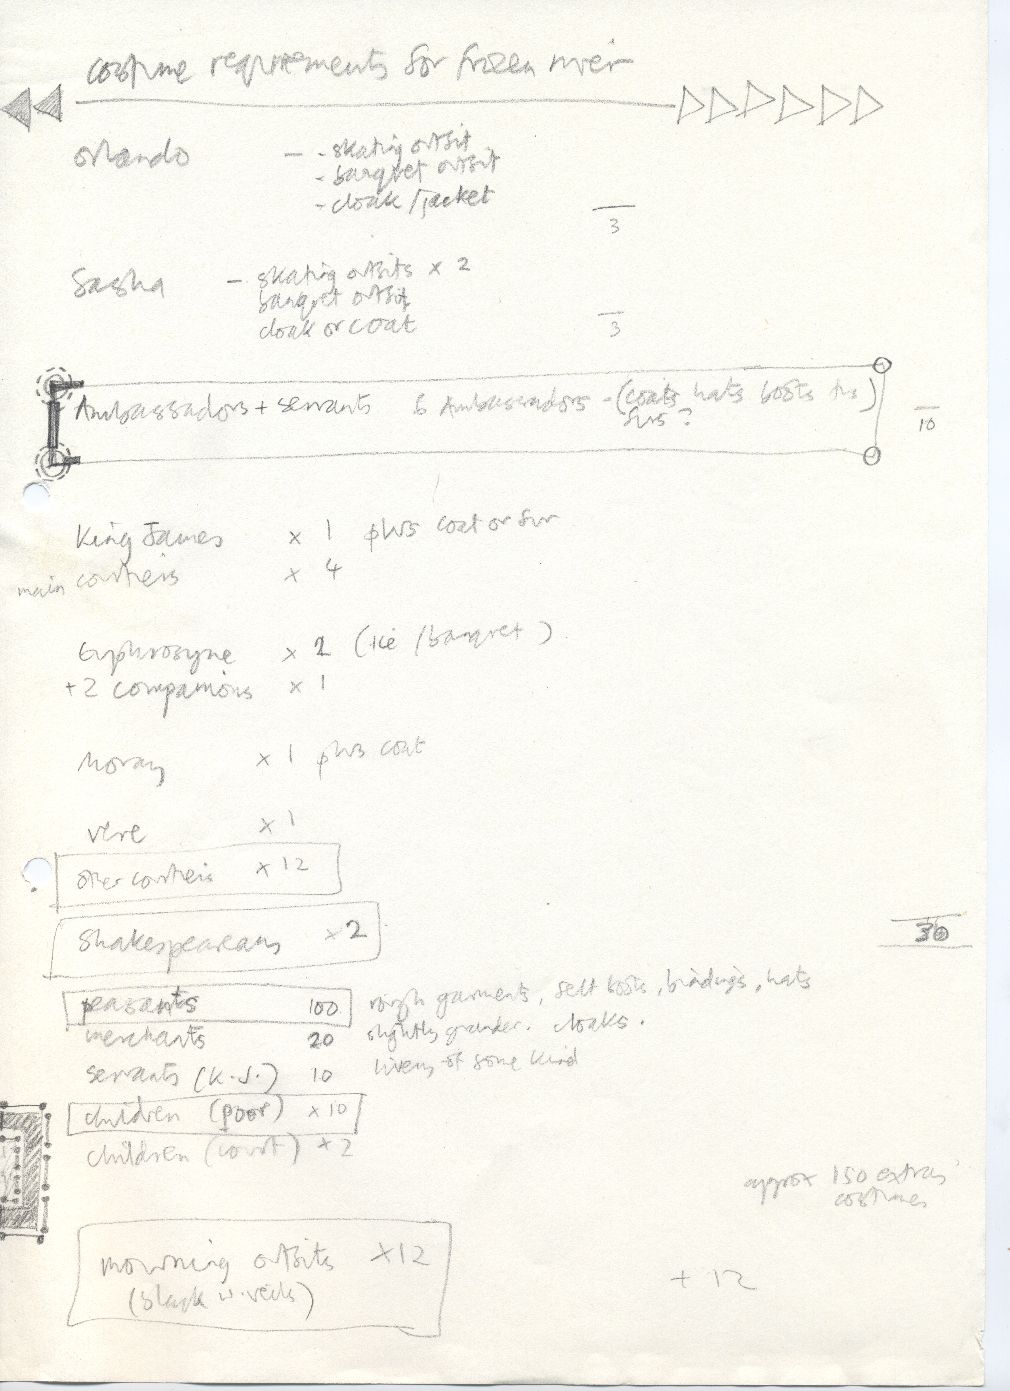 costume requirements for frozen river
Orlando — - skating outfit
- banquet outfit
- cloak / jacket
3
Sasha — skating outfits x 2
banquet outfit
cloak or coat
3
Ambassadors + servants 6 Ambassadors - (coats hats boots
furs?
10
King James x 1 plus coat or fur
main courtiers x 4
Euphrosyne x 2 (ice / banquet)
+ 2 companions x 1
Moray x 1 plus coat
vere x 1
other courtiers x 12
Shakespeareans x 2
30
peasants 100 rough garments, felt boots, bindings, hats
merchants 20 slightly grander. cloaks.
servants (K.J.) 10 livery of some kind
children (poor) x 10
children (court) x 2
approx 150 extras
costumes
mourning outfits x 12
(black w. veils)
+ 12